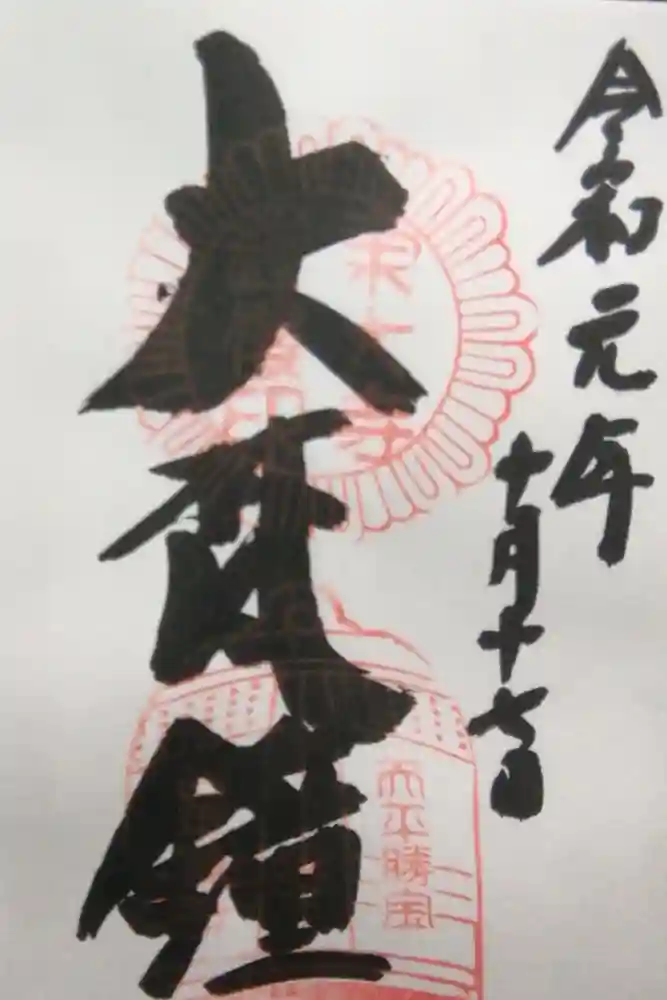 令和元年
十月十七日
大
鐘
東大寺
天平勝宝